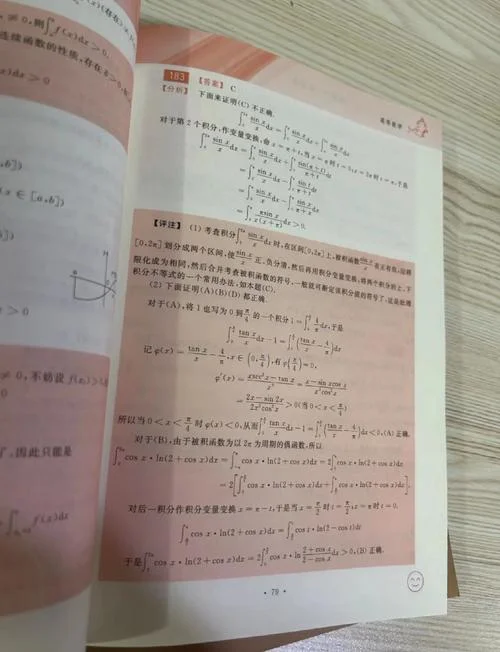 ≠0,则∫f(x)dx>0.
连续函数的性质,存在δ>0,
dx>0
(x∈[a,b])
≠0,不妨设f(x₁)>
了,因此只能是
高等数学
183 【答案】 C
【分析】 下面来证明(C)不正确.
∫₀^{2π} sin x/x dx = ∫₀^π sin x/x dx + ∫_π^{2π} sin x/x dx
对于第2个积分,作变量变换,命x=π+t,当x=π时t=0,x=2π时t=π,于是
∫₀^{2π} sin x/x dx = ∫₀^π sin x/x dx + ∫₀^π sin(π+t)/(π+t) dt
= ∫₀^π sin x/x dx − ∫₀^π sin t/(π+t) dt
= ∫₀^π sin x/x dx − ∫₀^π sin x/(π+x) dx
= ∫₀^π πsin x/(x(x+π)) dx>0.
【评注】 (1) 考查积分∫₀^{2π} sin x/x dx时,在区间[0,2π]上,被积函数sin x/x有正有负,
[0,2π]划分成两个区间,使sin x/x正、负分清,然后再用积分变量变换,将两个积分的上、下
限化成为相同,然后合并考查被积函数的符号,一般就可断定该积分值的符号了,这是处理
积分不等式的一个常用办法,如本题(C).
(2) 下面证明(A)(B)(D)都正确.
对于(A),将1也写为0到π/4的一个积分1=∫₀^{π/4} 4/π dx,于是
∫₀^{π/4} tan x/x dx − 1 = ∫₀^{π/4} (tan x/x − 4/π) dx
记φ(x)= tan x/x − 4/π, x∈(0, π/4),有φ(π/4)=0,
φ′(x)= (xsec²x−tan x)/x² = (x−sin xcos x)/(x²cos²x)
= (2x−sin 2x)/(2x²cos²x) >0(当0<x<π/4)
所以当0<x<π/4时φ(x)<0,从而∫₀^{π/4} tan x/x dx−1=∫₀^{π/4} (tan x/x − 4/π) dx<0,(A)正确.
对于(B),由于被积函数为以2π为周期的偶函数,所以
∫₀^{2π} cos x·ln(2+cos x)dx=∫_{−π}^{π} cos x·ln(2+cos x)dx=2∫₀^π cos x·ln(2+cos x)dx
=2[∫₀^{π/2} cos x·ln(2+cos x)dx+∫_{π/2}^π cos x·ln(2+cos x)dx],
对后一积分作积分变量变换x=π−t,于是当x=π/2时t=π/2;x=π时t=0.
∫_{π/2}^π cos x·ln(2+cos x)dx=∫_{π/2}^0 cos t·ln(2−cos t)dt
于是∫₀^{2π} cos x·ln(2+cos x)dx=2∫₀^{π/2} cos x·ln (2+cos x)/(2−cos x) dx>0,(B)正确.
· 79 ·